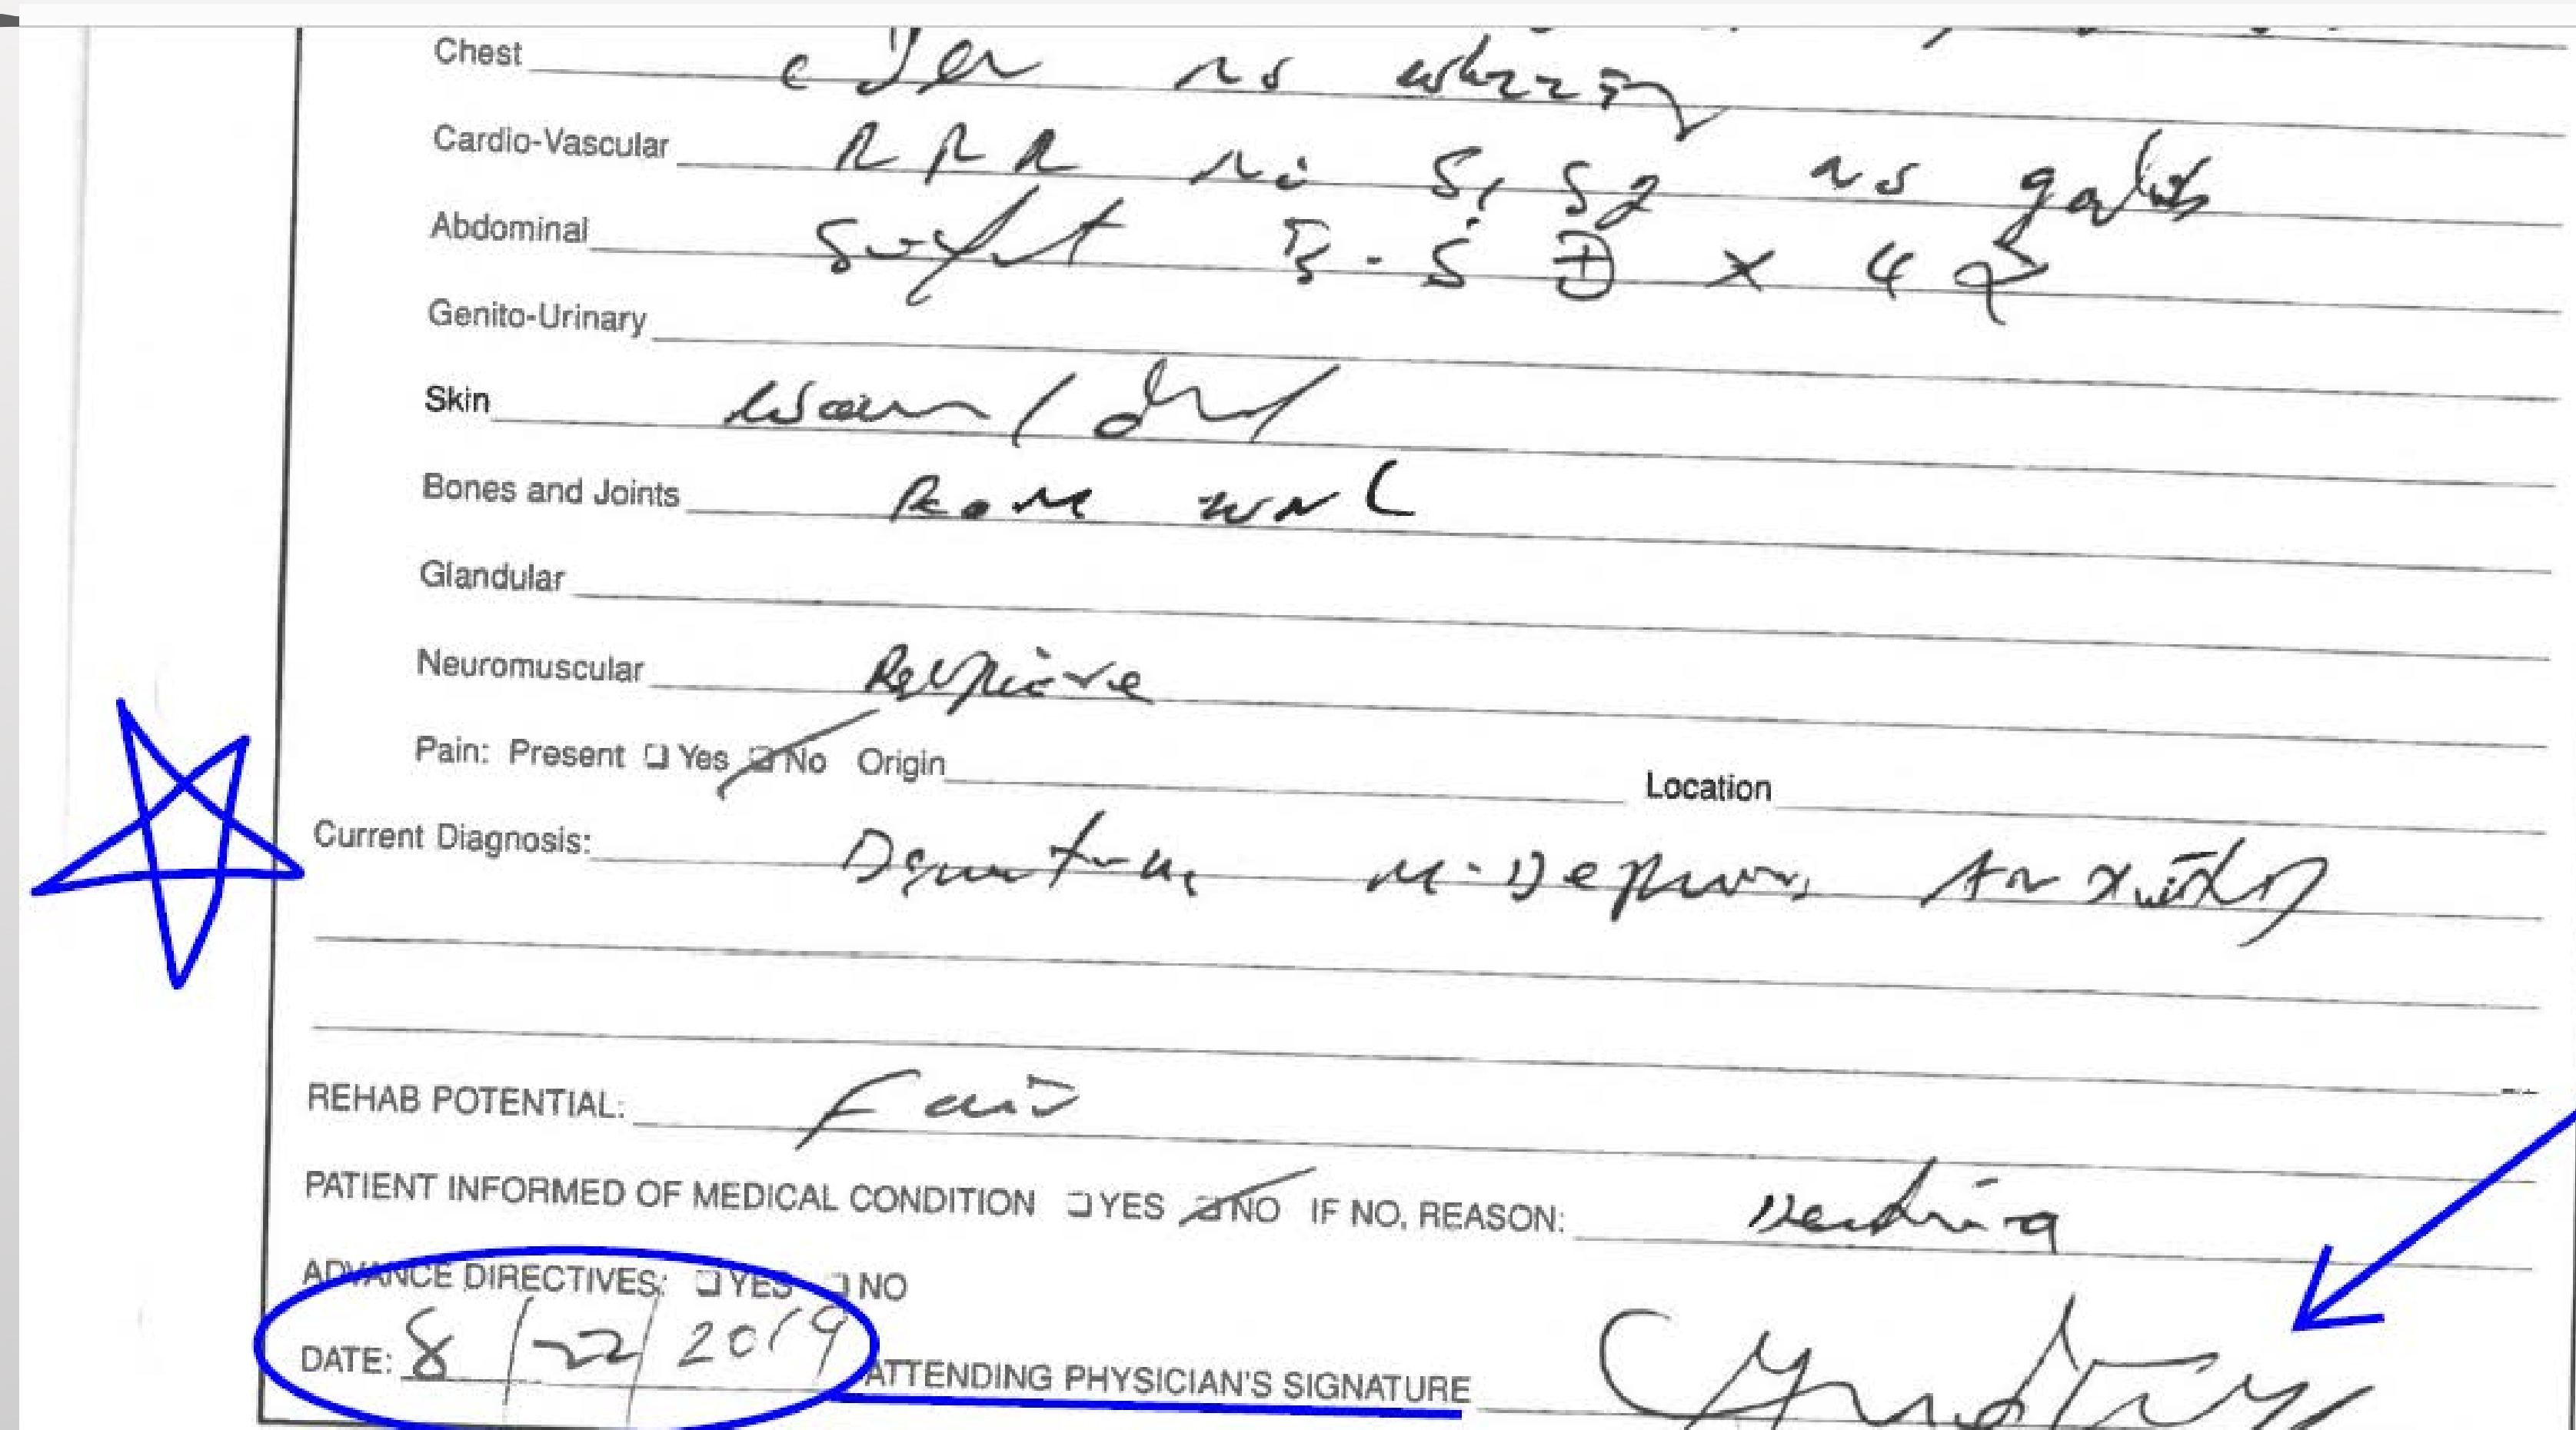 Chest clear no wheezing
Cardio-Vascular RRR no S1 S2 no gallops
Abdominal soft B.S ⊕ x 4 Q
Genito-Urinary
Skin Warm / dry
Bones and Joints ROM WNL
Glandular
Neuromuscular
Pain: Present ❑ Yes ❑ No Origin Location
Current Diagnosis: Dementia, M. Depression, Anxiety
REHAB POTENTIAL: Fair
PATIENT INFORMED OF MEDICAL CONDITION ❑ YES ❑ NO IF NO, REASON: Dementia
ADVANCE DIRECTIVES: ❑ YES ❑ NO
DATE: 8/22/2019 ATTENDING PHYSICIAN'S SIGNATURE